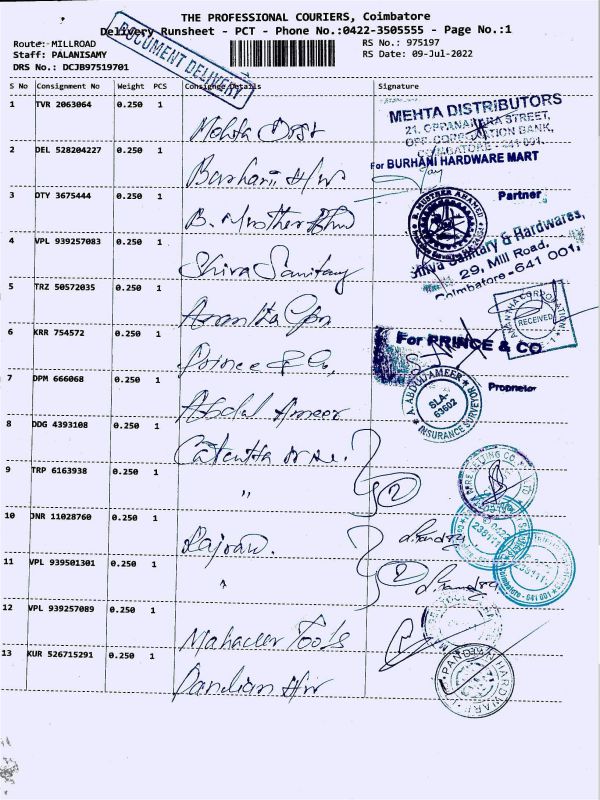 THE PROFESSIONAL COURIERS, Coimbatore
Delivery Runsheet - PCT - Phone No.:0422-3505555 - Page No.:1
DOCUMENT DELIVERY
Route: MILLROAD RS No.: 975197
Staff: PALANISAMY RS Date: 09-Jul-2022
DRS No.: DCJB97519701
S No Consignment No Weight PCS Consignee Details Signature
1 TVR 2063064 0.250 1
Mehta Dist
MEHTA DISTRIBUTORS
21, OPPANAKARA STREET,
OPP. CORPORATION BANK,
COIMBATORE - 641 001.
2 DEL 528204227 0.250 1
Burhani H/W
For BURHANI HARDWARE MART
Partner
3 DTY 3675444 0.250 1
B.
4 VPL 939257083 0.250 1
Shiva Sanitary
Shiva Sanitary & Hardwares,
29, Mill Road,
Coimbatore - 641 001.
5 TRZ 50572035 0.250 1
Anantha Cpn
ANANTHA CORPORATION
RECEIVED
6 KRR 754572 0.250 1
Prince & Co,
For PRINCE & CO
Proprietor
7 DPM 666068 0.250 1
Abdul Ameer
A. ABDUL AMEER
SLA-
63602
INSURANCE SURVEYOR
8 DDG 4393108 0.250 1
Calcutta
9 TRP 6163938 0.250 1
"
2
10 JNR 11028760 0.250 1
11 VPL 939501301 0.250 1
"
2
Coimbatore - 641 001
12 VPL 939257089 0.250 1
Mahaveer Tools
13 KUR 526715291 0.250 1
Pandian H/W
PANDIAN HARDWARE